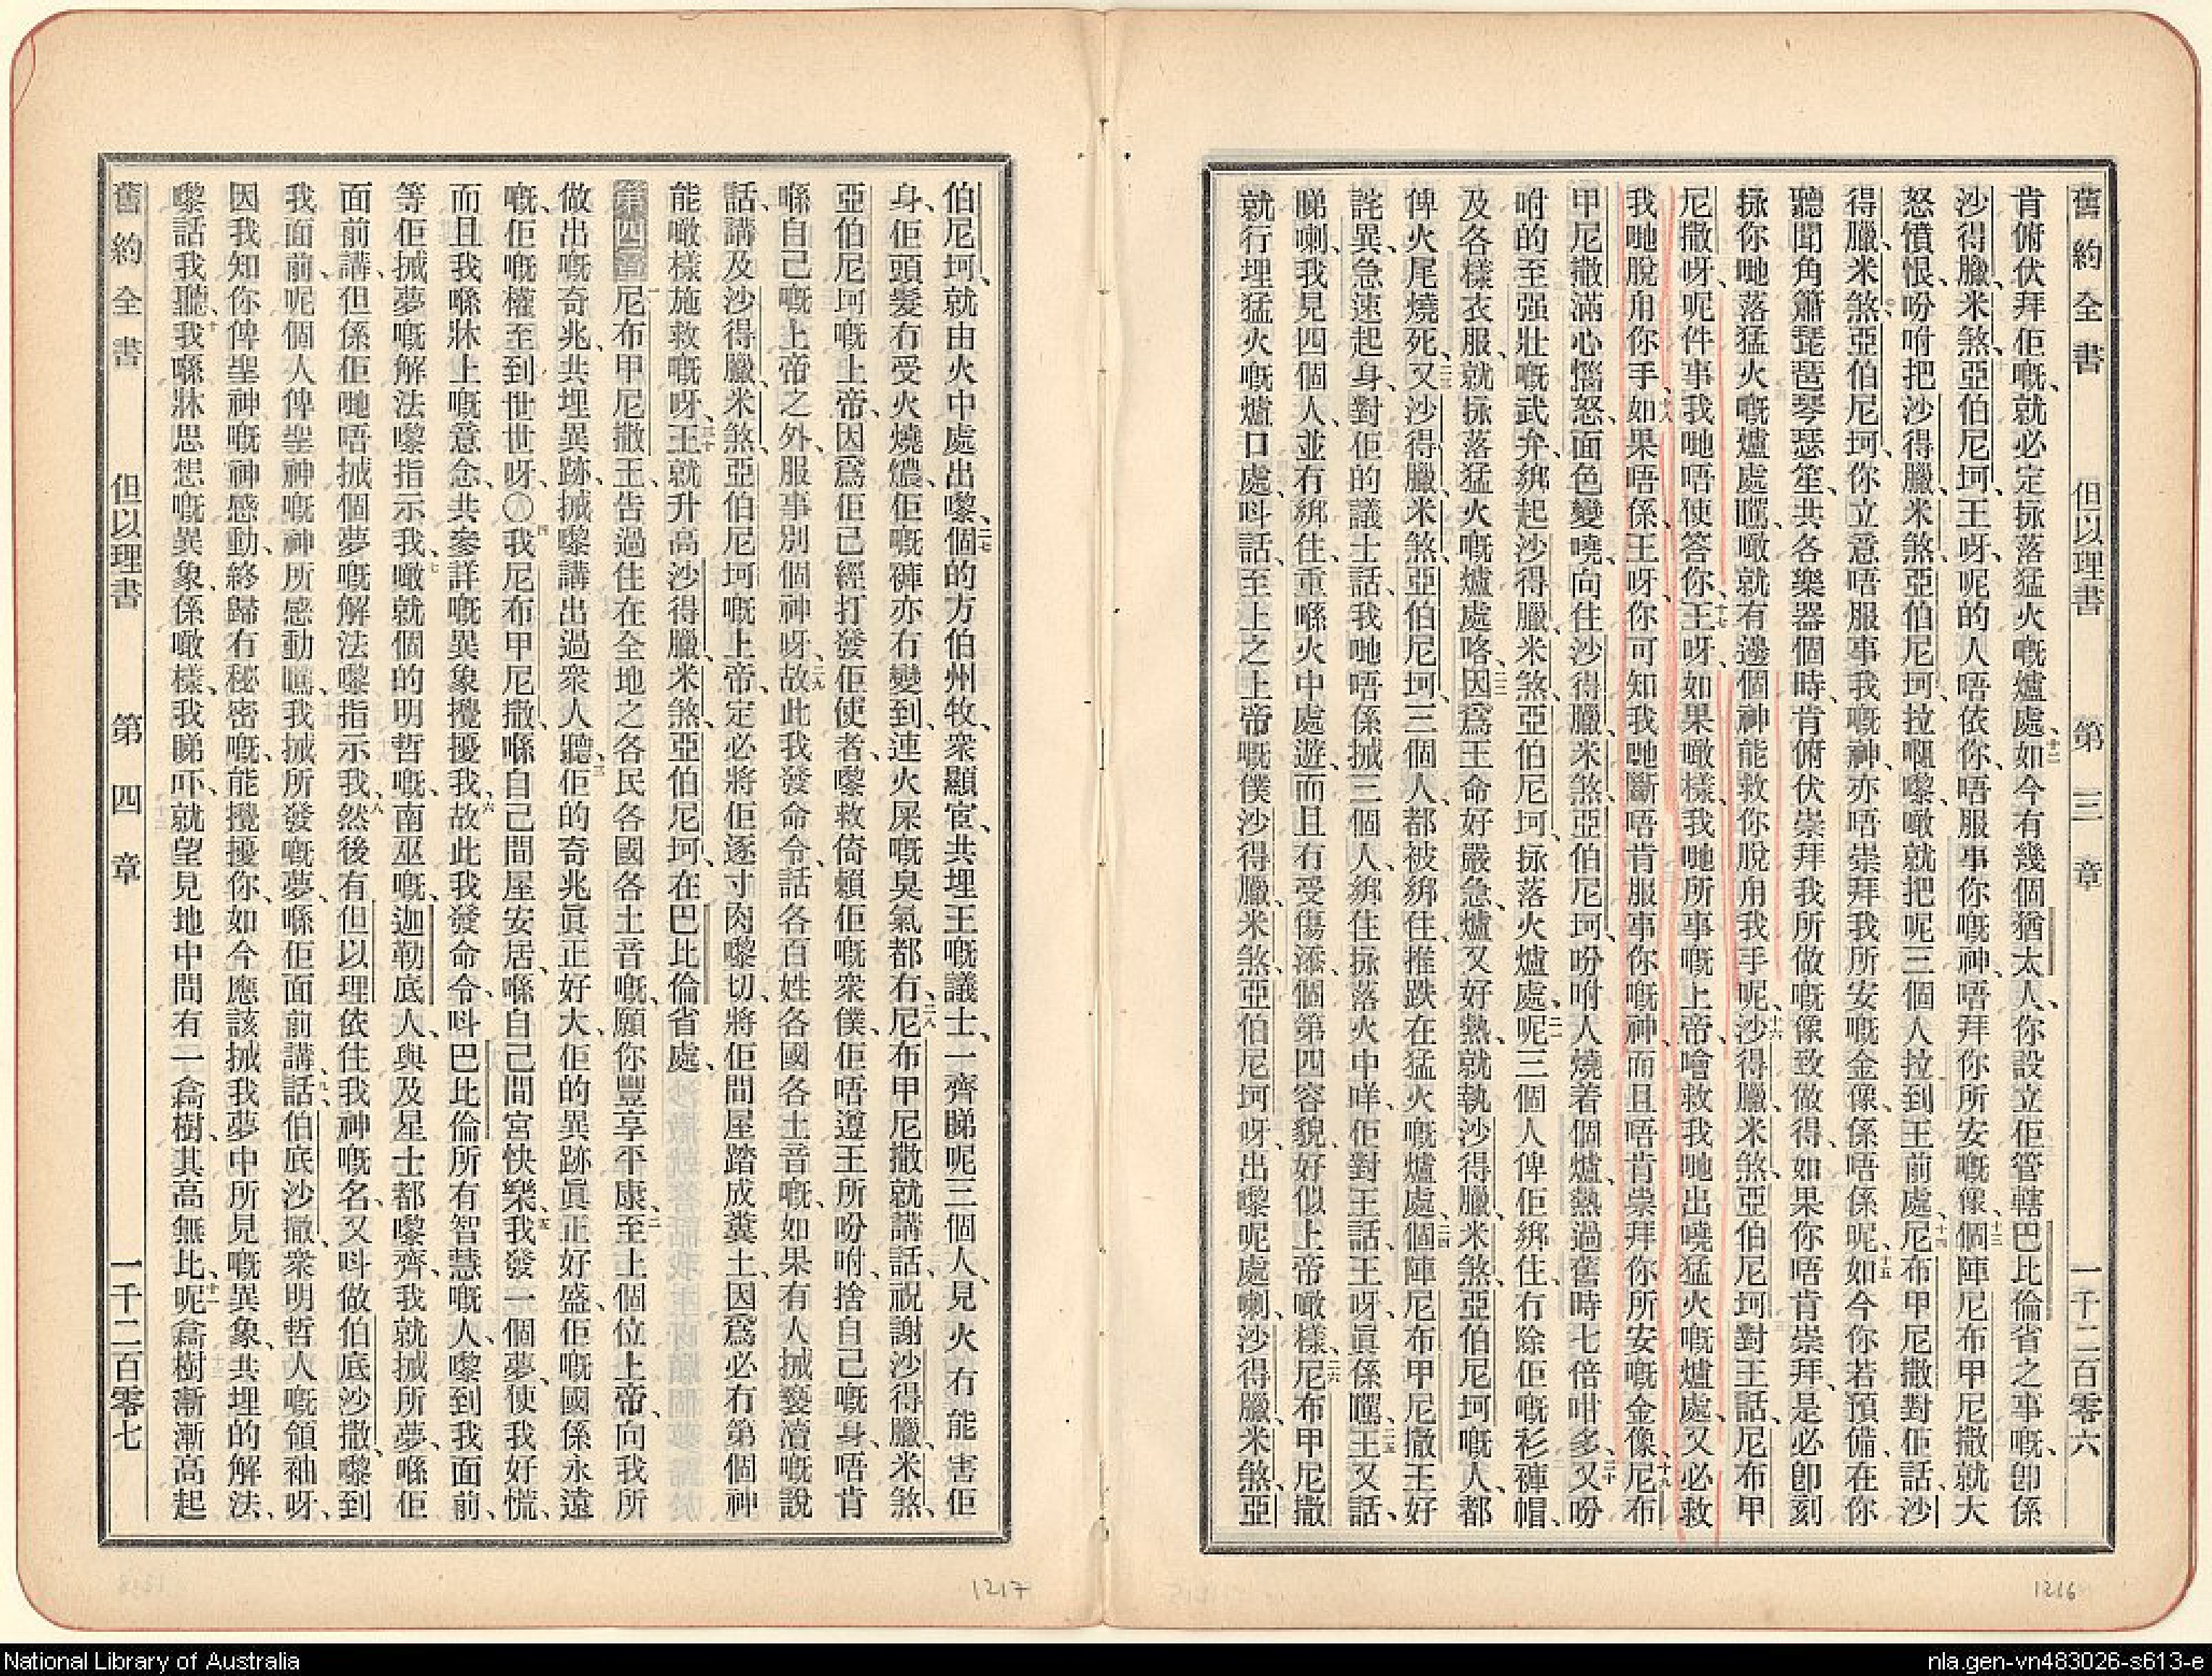 舊約全書 但以理書 第三章 一千二百零六
肯俯伏拜佢嘅、就必定掁落猛火嘅爐處、十二如今有幾個猶太人、你設立佢管轄巴比倫省之事嘅、卽係
沙得臘、米煞、亞伯尼坷、王呀、呢的人唔依你、唔服事你嘅神、唔拜你所安嘅像、十三個陣尼布甲尼撒就大
怒憤恨、吩咐把沙得臘、米煞、亞伯尼坷、拉嚟、噉就把呢三個人拉到王前處、十四尼布甲尼撒對佢話、沙
得臘、米煞、亞伯尼坷、你立意唔服事我嘅神、亦唔崇拜我所安嘅金像、係唔係呢、十五如今你若預備、在你
聽聞角簫琵琶琴瑟笙、共各樂器個時、肯俯伏崇拜我所做嘅像致做得、如果你唔肯崇拜、是必卽刻
掁你哋落猛火嘅爐處囉、噉就有邊個神能救你脫甪我手呢、十六沙得臘、米煞、亞伯尼坷對王話、尼布甲
尼撒呀、呢件事我哋唔使答你、十七王呀、如果噉樣、我哋所事嘅上帝、噲救我哋出嘵猛火嘅爐處、又必救
我哋脫甪你手、十八如果唔係、王呀、你可知我哋斷唔肯服事你嘅神、而且唔肯崇拜你所安嘅金像、十九尼布
甲尼撒滿心惱怒、面色變嘵、向住沙得臘、米煞、亞伯尼坷、吩咐人燒着個爐、熱過舊時七倍咁多、二十又吩
咐的至强壯嘅武弁、綁起沙得臘、米煞、亞伯尼坷、掁落火爐處、二一呢三個人俾佢綁住、冇除佢嘅衫褲帽、
及各樣衣服、就掁落猛火嘅爐處咯、二二因爲王命好嚴急、爐又好熱、就執沙得臘、米煞、亞伯尼坷嘅人、都
俾火尾燒死、二三又沙得臘、米煞、亞伯尼坷、三個人、都被綁住、推跌在猛火嘅爐處、二四個陣尼布甲尼撒王好
詫異、急速起身、對佢的議士話、我哋唔係揻三個人、綁住掁落火中咩、佢對王話、王呀、眞係囉、二五王又話、
睇喇、我見四個人、並冇綁住、重喺火中處遊、而且冇受傷添、個第四容貌、好似上帝噉樣、二六尼布甲尼撒
就行埋猛火嘅爐口處、呌話、至上之上帝嘅僕沙得臘、米煞、亞伯尼坷呀、出嚟呢處喇、沙得臘、米煞、亞
伯尼坷、就由火中處出嚟、二七個的方伯州牧、衆顯宦、共埋王嘅議士、一齊睇呢三個人、見火冇能害佢
身、佢頭髮冇受火燒㷟、佢嘅褲亦冇變到、連火屎嘅臭氣都冇、二八尼布甲尼撒就講話、祝謝沙得臘、米煞、
亞伯尼坷嘅上帝、因爲佢己經打發佢使者、嚟救倚賴佢嘅衆僕、佢唔遵王所吩咐、捨自己嘅身、唔肯
喺自己嘅上帝之外、服事別個神呀、二九故此我發命令、話各百姓各國各土音嘅、如果有人揻褻瀆嘅說
話、講及沙得臘、米煞、亞伯尼坷嘅上帝、定必將佢逐寸肉嚟切、將佢間屋踏成糞土、因爲必冇第個神
能噉樣施救嘅呀、三十王就升高沙得臘、米煞、亞伯尼坷、在巴比倫省處、
第四章 一尼布甲尼撒王、告過住在全地之各民各國各土音嘅、願你豐享平康、二至上個位上帝、向我所
做出嘅奇兆、共埋異跡、揻嚟講出過衆人聽、三佢的奇兆眞正好大、佢的異跡眞正好盛、佢嘅國係永遠
嘅、佢嘅權至到世世呀、〇四我尼布甲尼撒、喺自己間屋安居、喺自己間宮快樂、五我發一個夢、使我好慌、
而且我喺牀上嘅意念、共參詳嘅異象攪擾我、六故此我發命令、呌巴比倫所有智慧嘅人、嚟到我面前、
等佢揻夢嘅解法嚟指示我、七噉就個的明哲嘅、南巫嘅、迦勒底人、與及星士都嚟齊、我就揻所夢、喺佢
面前講、但係佢哋唔揻個夢嘅解法嚟指示我、八然後有但以理依住我神嘅名、又呌做伯底沙撒、嚟到
我面前、呢個人俾聖神嘅神所感動嘅、我揻所發嘅夢、喺佢面前講、九話、伯底沙撒、衆明哲人嘅領袖呀、
因我知你俾聖神嘅神感動、終歸冇秘密嘅、能攪擾你、如今應該揻我夢中所見嘅異象、共埋的解法、
嚟話我聽、十我喺牀思想嘅異象、係噉樣、我睇吓、就望見地中間有一樖樹、其高無比、十一呢樖樹漸漸高起
舊約全書 但以理書 第四章 一千二百零七
1217
1216
National Library of Australia
nla.gen-vn483026-s613-e